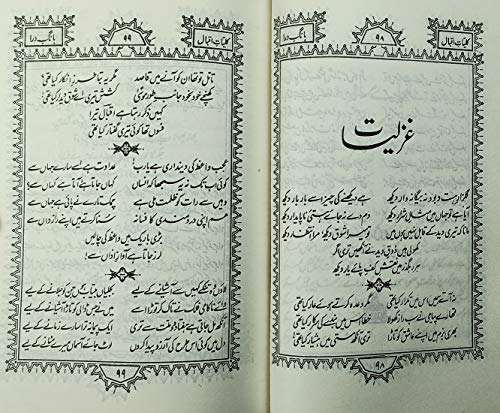 کلیاتِ اقبال ۹۸ بانگِ درا
غزلیات
گلزارِ ہست و بود نہ بیگانہ وار دیکھ ہے دیکھنے کی چیز اسے بار بار دیکھ
آیا ہے تو جہاں میں مثالِ شرار دیکھ دم دے نہ جائے ہستی ناپائدار دیکھ
مانا کہ تیری دید کے قابل نہیں ہوں میں تو میرا شوق دیکھ مرا انتظار دیکھ
کھولی ہیں ذوقِ دید نے آنکھیں تری اگر
ہر رہگزر میں نقشِ کفِ پائے یار دیکھ
نہ آتے ہمیں اس میں تکرار کیا تھی مگر وعدہ کرتے ہوئے عار کیا تھی
تمہارے پیامی نے سب راز کھولا خطا اس میں بندے کی سرکار کیا تھی
بھری بزم میں اپنے عاشق کو تاڑا تری آنکھ مستی میں ہشیار کیا تھی
۹۸
کلیاتِ اقبال ۹۹ بانگِ درا
تامل تو تھا ان کو آنے میں قاصد مگر یہ بتا طرزِ انکار کیا تھی
کھنچے خود بخود جانبِ طور موسیٰ کشش تیری اے شوقِ دیدار کیا تھی
کہیں ذکر رہتا ہے اقبال تیرا
فسوں تھا کوئی تیری گفتار کیا تھی
عجب واعظ کی دینداری ہے یارب عداوت ہے اسے سارے جہاں سے
کوئی اب تک نہ یہ سمجھا کہ انساں کہاں جاتا ہے آتا ہے کہاں سے
وہیں سے رات کو ظلمت ملی ہے چمک تارے نے پائی ہے جہاں سے
ہم اپنی دردمندی کا فسانہ سنا کرتے ہیں اپنے رازداں سے
بڑی باریک ہیں واعظ کی چالیں
لرز جاتا ہے آوازِ اذاں سے
لاؤں وہ تنکے کہیں سے آشیانے کے لیے بجلیاں بیتاب ہوں جن کو جلانے کے لیے
وائے ناکامی فلک نے تاک کر توڑا اسے میں نے جس ڈالی کو تاڑا آشیانے کے لیے
آنکھ مل جاتی ہے ہفتاد و دو ملت سے تری ایک پیمانہ ترا سارے زمانے کے لیے
دل میں کوئی اس طرح کی آرزو پیدا کروں لوٹ جائے آسماں میرے مٹانے کے لیے
۹۹